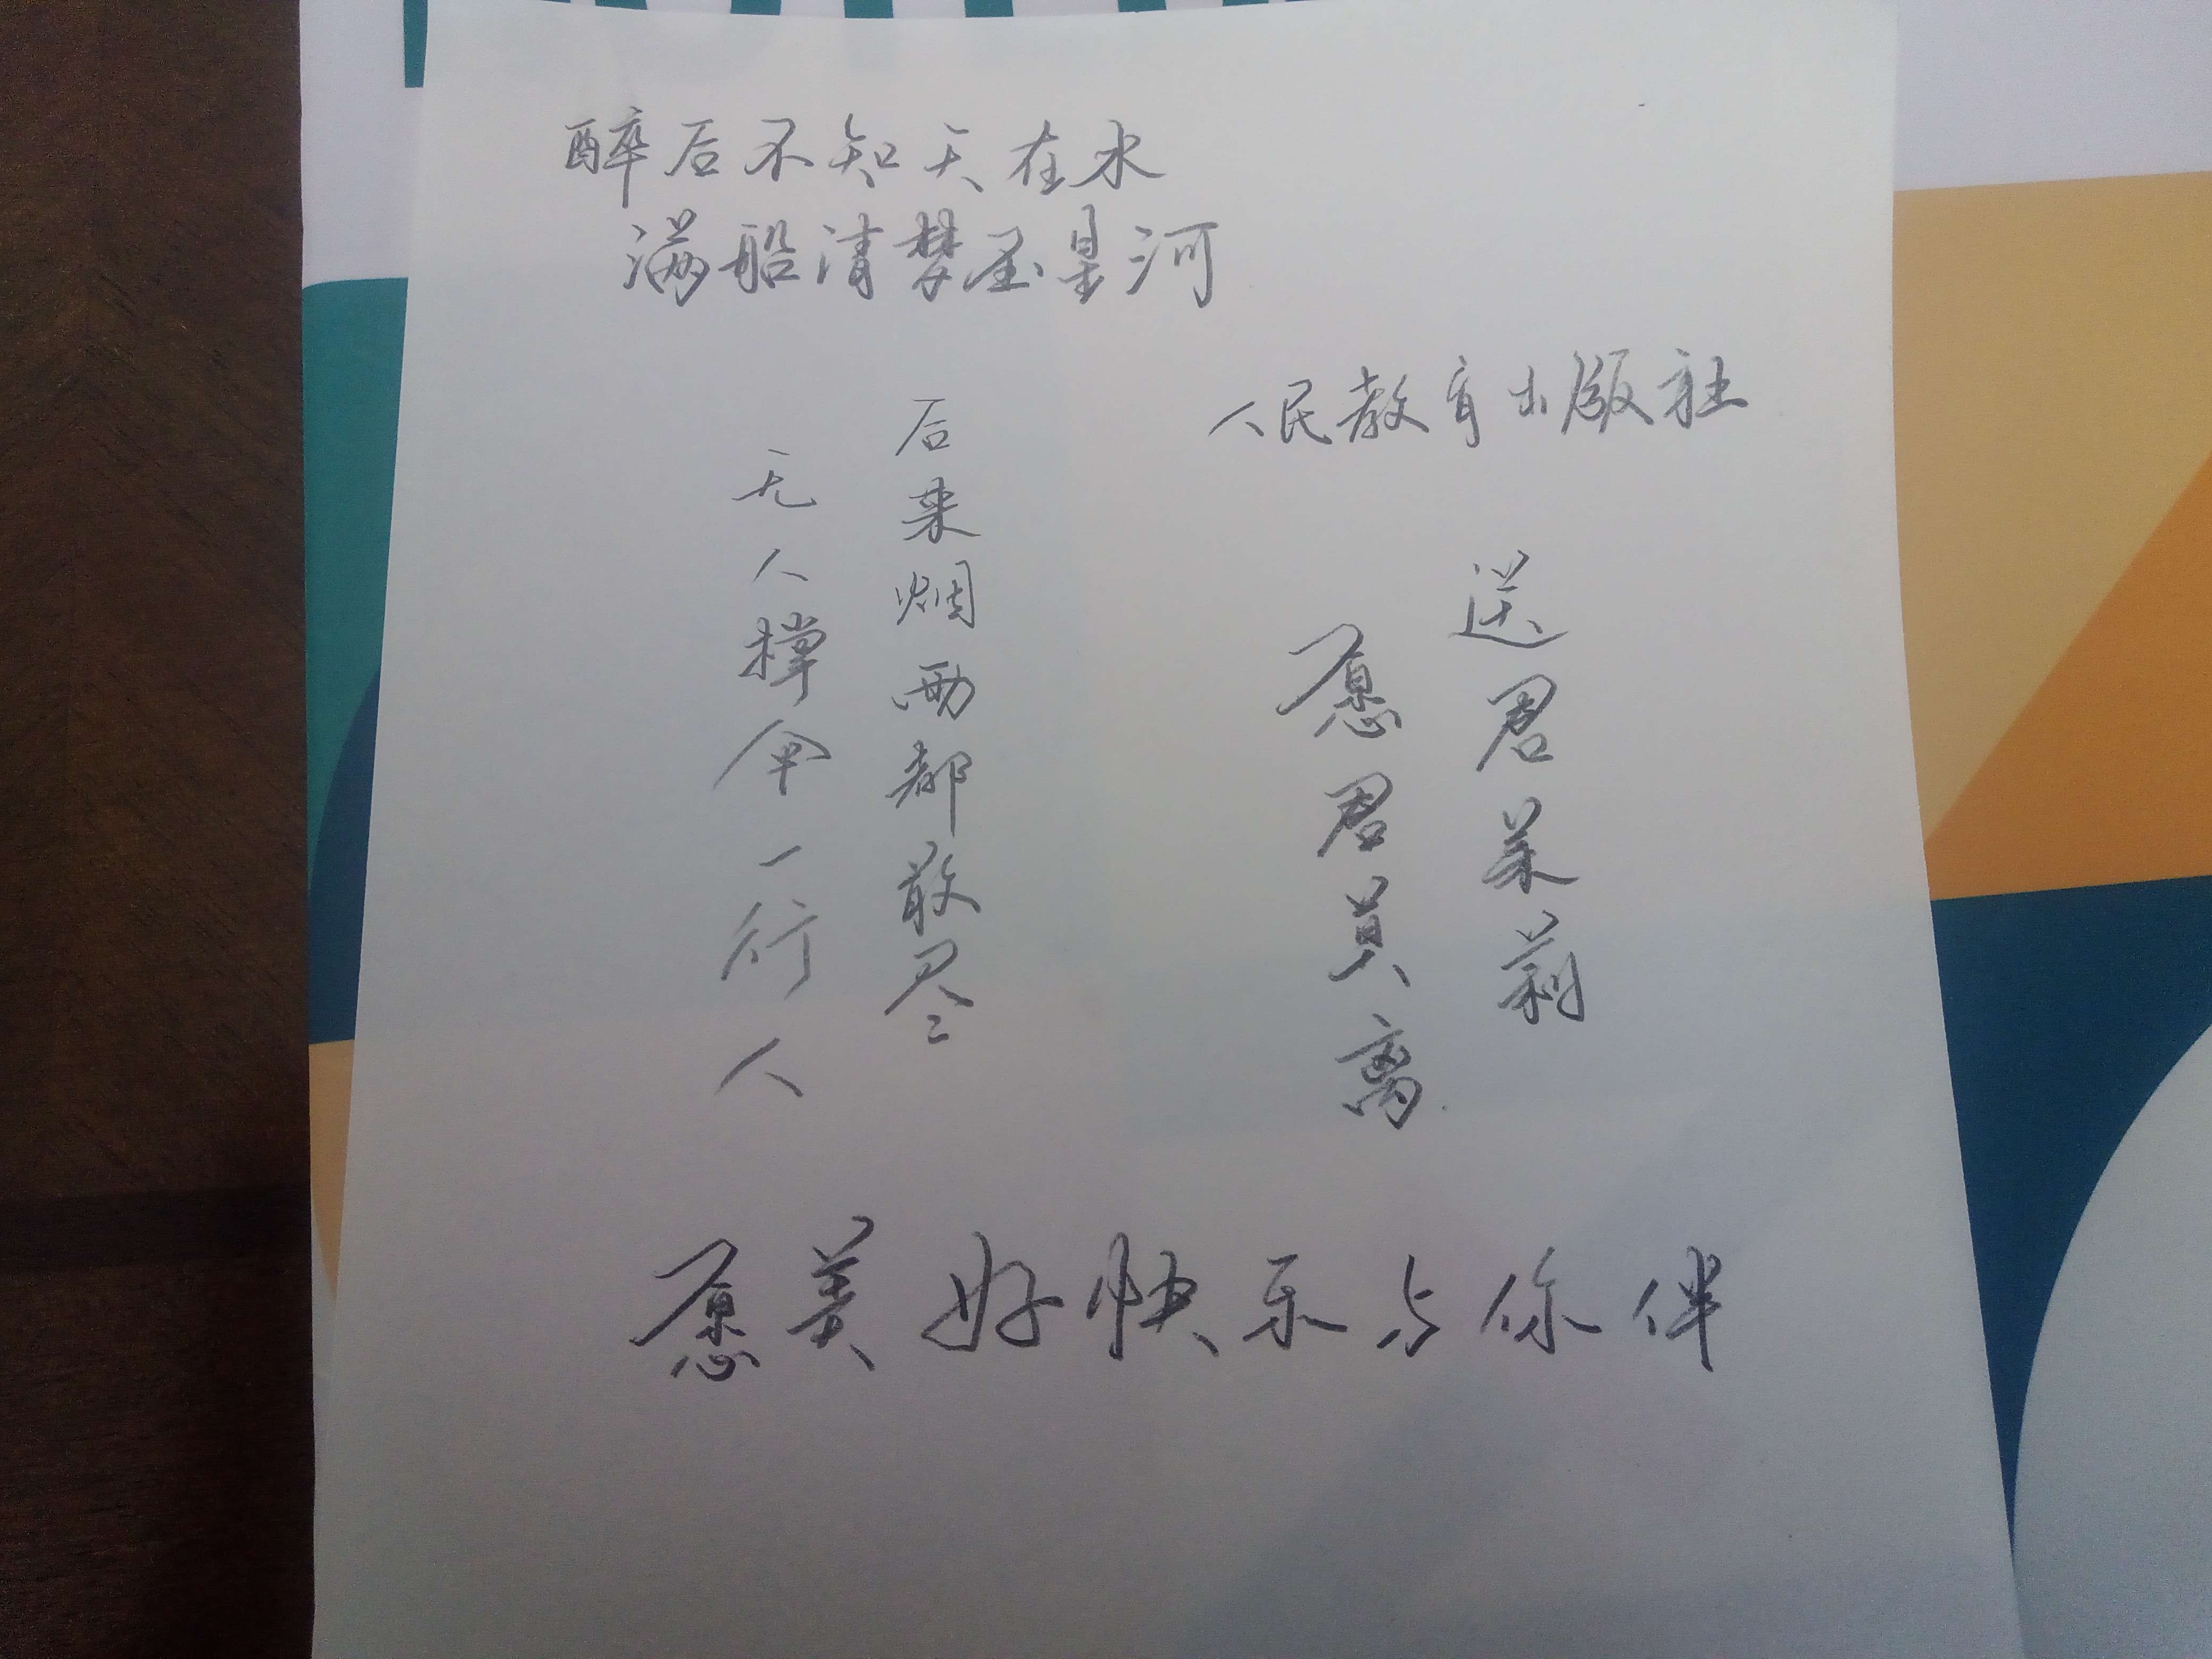 醉后不知天在水
满船清梦压星河
人民教育出版社
送君茉莉
愿君莫离
后来烟雨都散尽
无人撑伞一行人
愿美好快乐与你伴